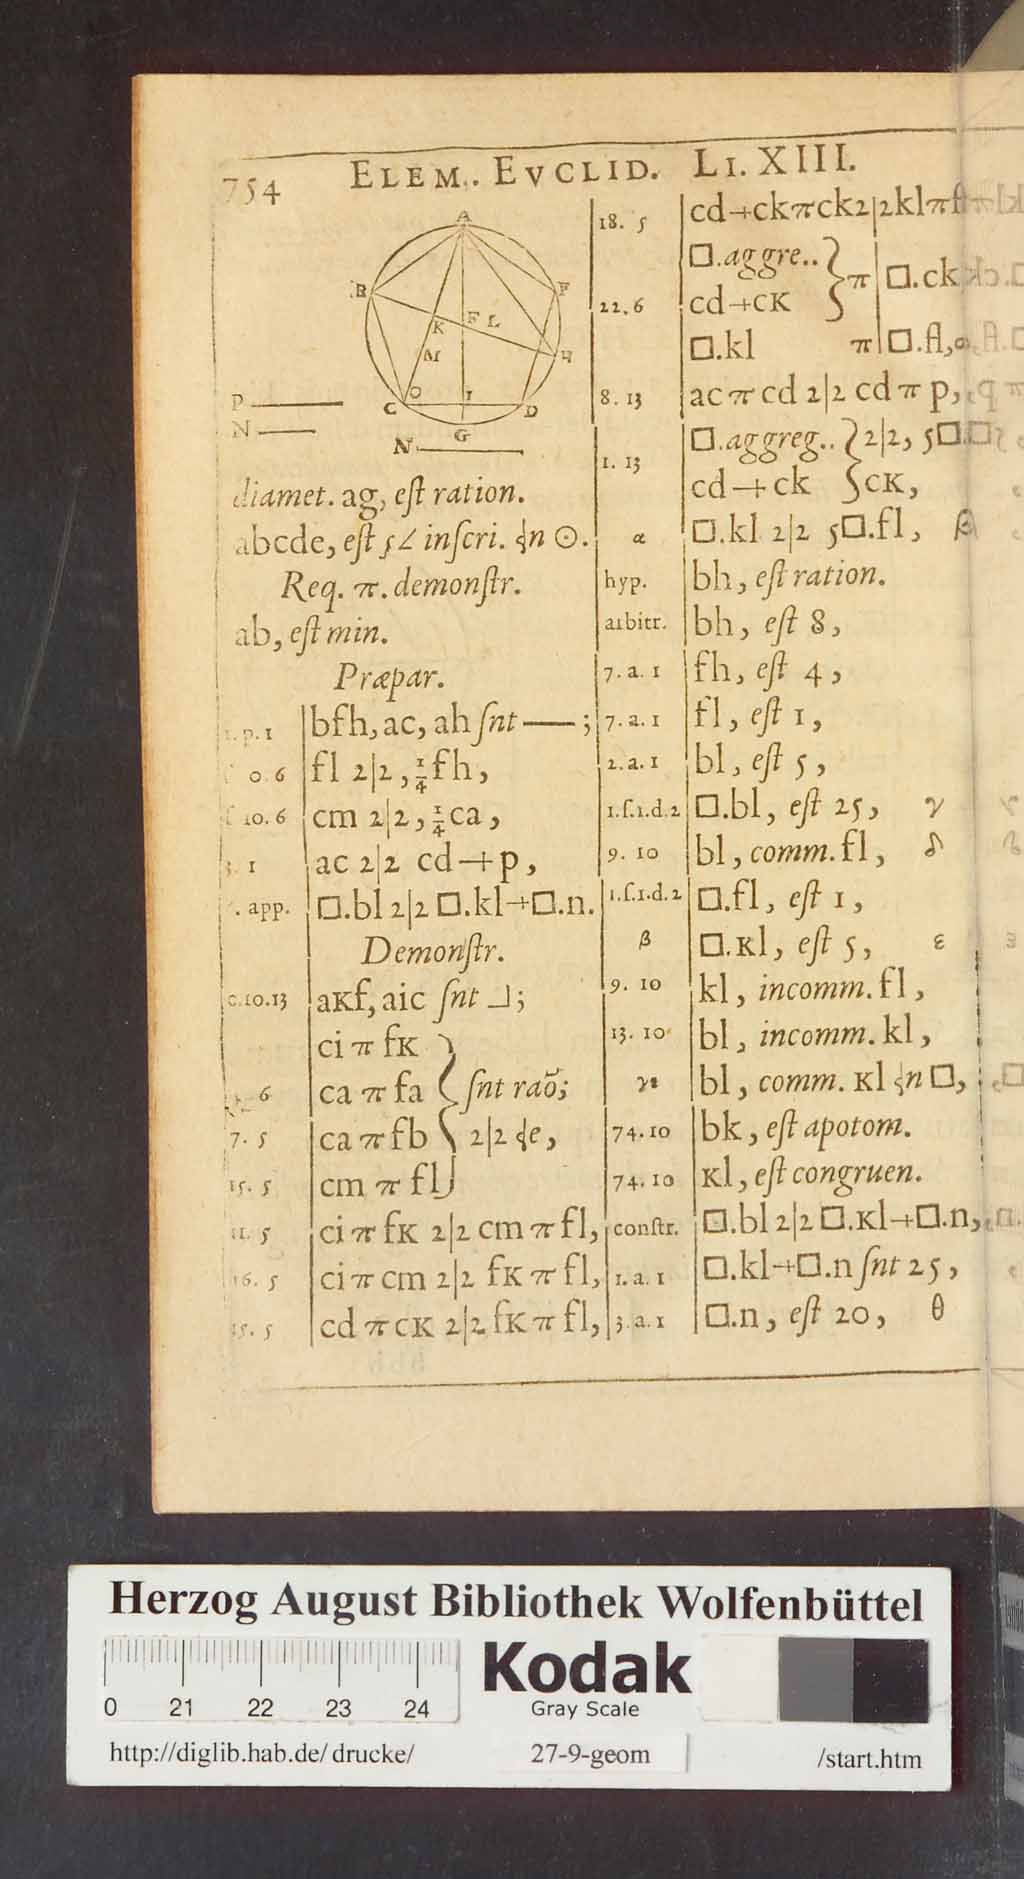 754 ELEM.. EVCLID. LI. XIII.
A
B F
K F L
M H
O I
C D
P G
N N
diamet. ag, eſt ration.
abcde, eſt 5∠ inſcri. ⊰n ⊙.
Req. π. demonſtr.
ab, eſt min.
Præpar.
1.p.1 bfh, ac, ah ſnt — ;
10.6 fl 2|2, ¼fh,
10.6 cm 2|2, ¼ca,
3. 1 ac 2|2 cd+p,
app. □.bl 2|2 □.kl+□.n.
Demonſtr.
c.10.13 aKf, aic ſnt ⅃;
ci π fK
6 ca π fa } ſnt raõ;
7. 5 ca π fb 2|2 ⊰e,
15. 5 cm π fl
11. 5 ci π fK 2|2 cm π fl,
16. 5 ci π cm 2|2 fK π fl,
15. 5 cd π cK 2|2 fK π fl,
18. 5 cd+ck π ck 2|2 kl π fl
□.aggre.. } π □.ck
22.6 cd+cK
□.kl π □.fl, α
8. 13 ac π cd 2|2 cd π p,
□.aggreg.. } 2|2, 5□.
1. 13 cd+ck cK,
α □.kl 2|2 5□.fl, β
hyp. bh, eſt ration.
arbitr. bh, eſt 8,
7. a. 1 fh, eſt 4,
7. a. 1 fl, eſt 1,
2. a. 1 bl, eſt 5,
1.ſ.1.d.2 □.bl, eſt 25, γ
9. 10 bl, comm. fl, δ
1.ſ.1.d.2 □.fl, eſt 1,
β □.Kl, eſt 5, ε
9. 10 kl, incomm. fl,
13. 10 bl, incomm. kl,
γε bl, comm. Kl ⊰n □,
74.10 bk, eſt apotom.
74.10 Kl, eſt congruen.
conſtr. □.bl 2|2 □.Kl+□.n,
1. a. 1 □.kl+□.n ſnt 25,
3. a. 1 □.n, eſt 20, θ
Herzog August Bibliothek Wolfenbüttel
0 21 22 23 24
Kodak
Gray Scale
http://diglib.hab.de/drucke/ 27-9-geom /start.htm